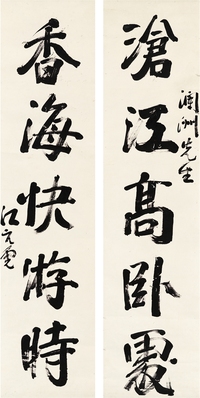 滄江高卧處
瀾洲先生
香海快游時
江元虎